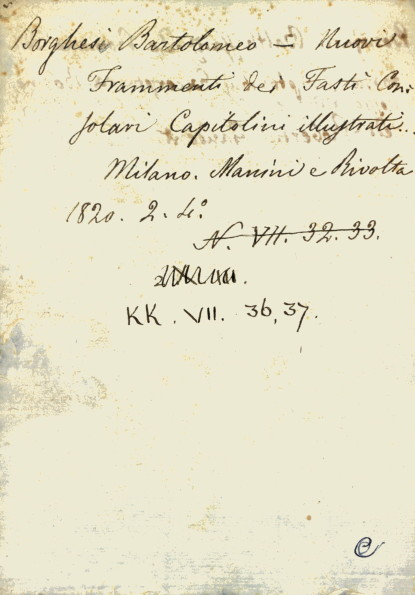 Borghesi Bartolomeo — Nuovi
Frammenti dei Fasti Con=
solari Capitolini illustrati..
Milano. Manini e Rivolta
1820. 2. 4.º
N. VII. 32. 33.
KK. VII. 36, 37.